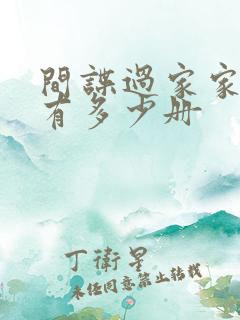 間諜過家家
有多少册
丁衛星
未经同意禁止转载